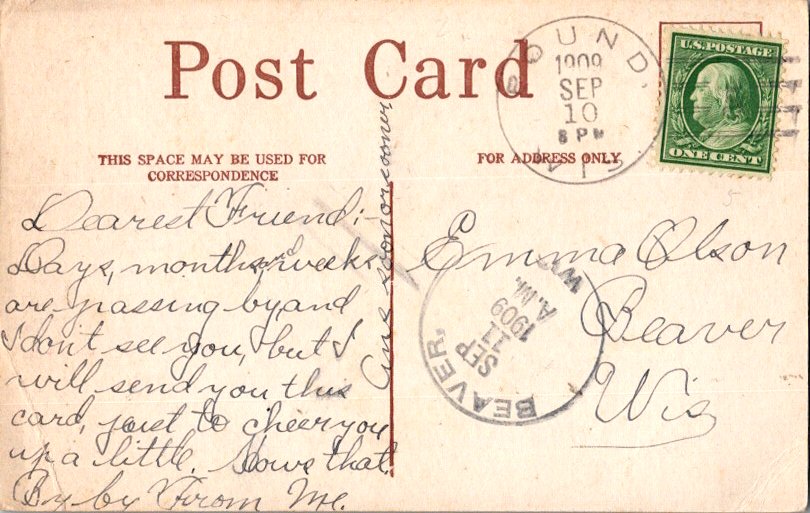 Post Card
THIS SPACE MAY BE USED FOR
CORRESPONDENCE
FOR ADDRESS ONLY
OUND,
1909
SEP
10
8 PM
U.S. POSTAGE
ONE CENT
Dearest Friend:-
Days, months, and weeks
are passing by, and
I don't see you, but I
will send you this
card, just to cheer you
up a little. Hows that.
By by From Me.
soon or sooner
Emma Olson
Beaver
Wis
BEAVER,
SEP
11
1909
A.M.